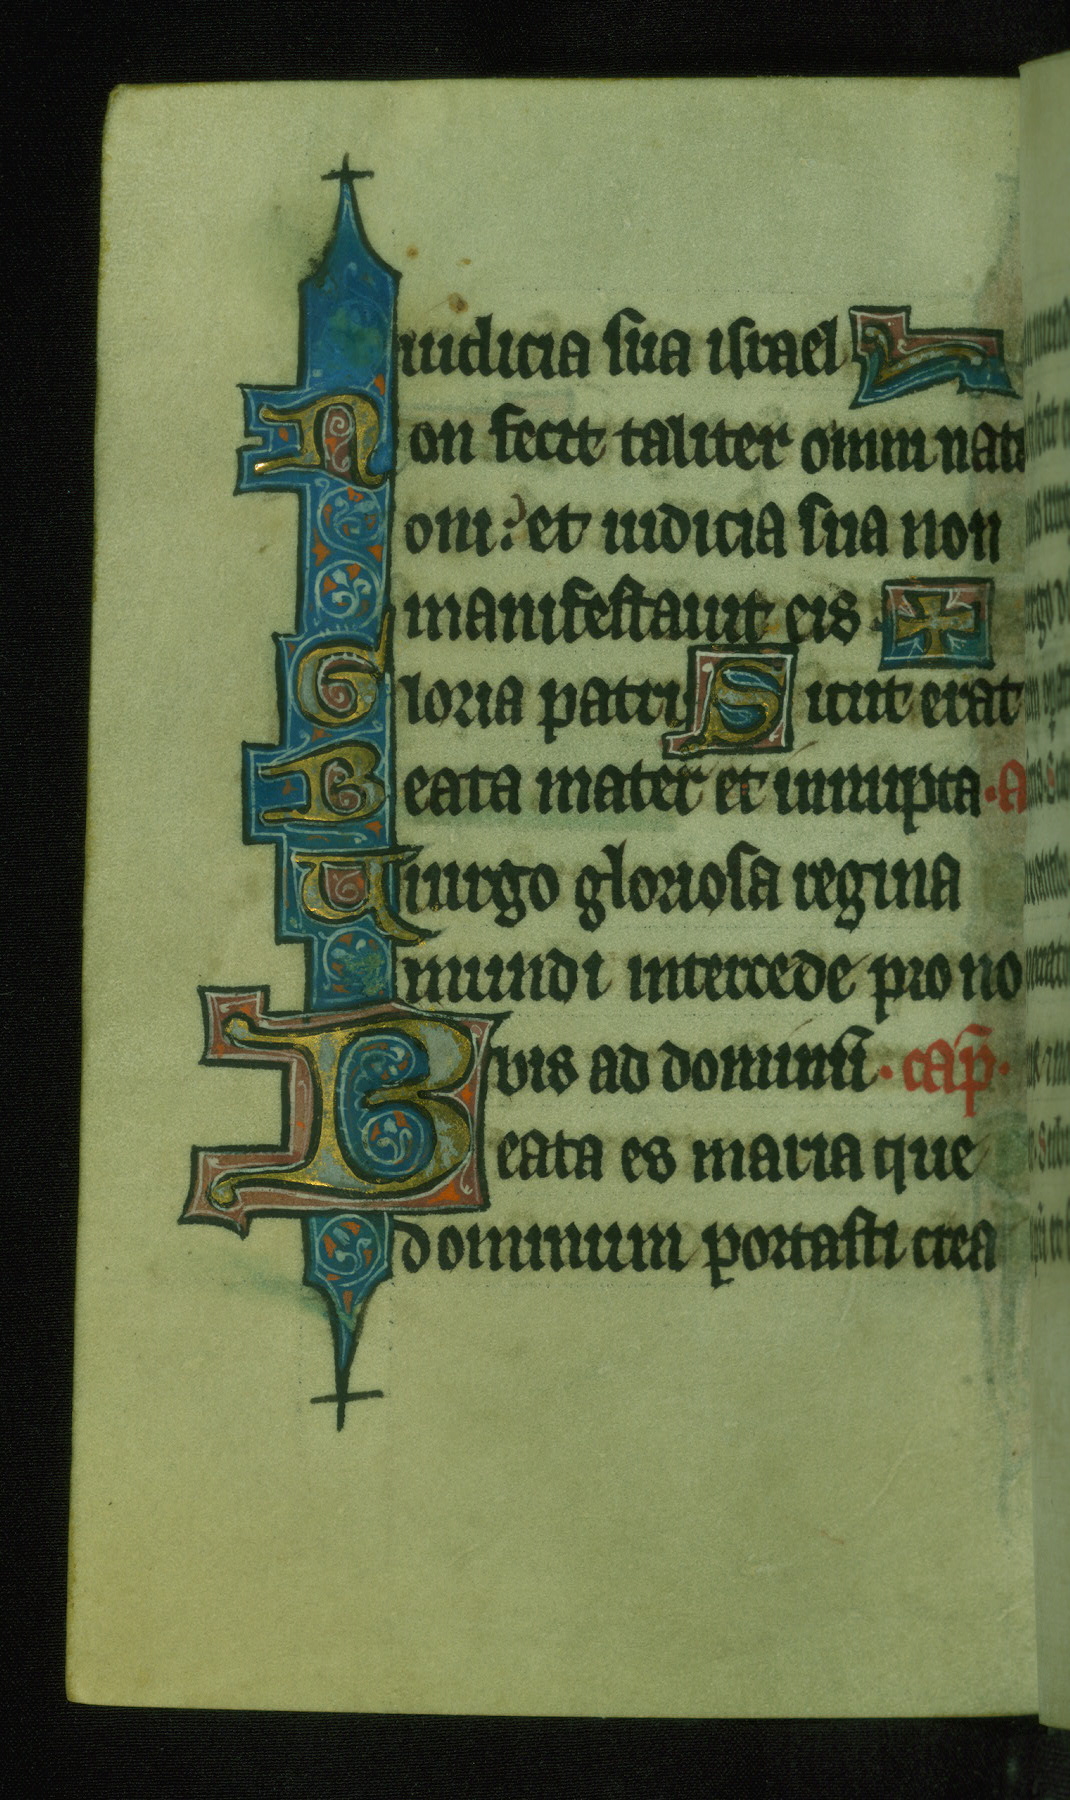 iudicia sua israel
Non fecit taliter omni nati
oni: et iudicia sua non
manifestauit eis
Gloria patri Sicut erat
Beata mater et innupta. A
Uiurgo gloriosa regina
mundi intercede pro no
bis ad dominū. cap̄.
Beata es maria que
dominum portasti crea